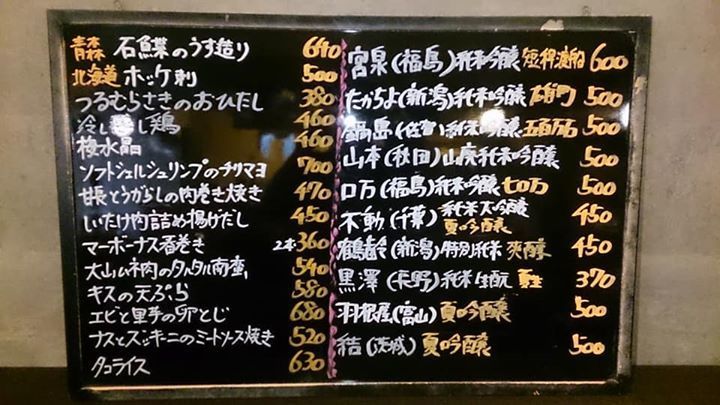 青森 石鰈のうす造り 640
北海道 ホッケ刺 500
つるむらさきのおひたし 380
冷し し鶏 460
梅水晶 460
ソフトシェルシュリンプのチリマヨ 700
甘長とうがらしの肉巻き焼き 470
しいたけ肉詰め揚げだし 450
マーボーナス春巻き 2本360
大山ム礻肉のタルタル南蛮 540
キスの天ぷら 580
エビと里芋の卵とじ 680
ナスとズッキーニのミートソース焼き 520
タコライス 630
宮泉(福島)純米吟醸 短稈渡船 600
たかちよ(新潟)純米吟醸 雄町 500
鍋島(佐賀)純米吟醸 五百万石 500
山本(秋田)山廃純米吟醸 500
ロ万(福島)純米吟醸 七ロ万 500
不動(千葉)純米大吟醸 夏吟醸 450
鶴齢(新潟)特別純米 爽醇 450
黒澤(長野)純米生酛 夏生 370
羽根屋(富山)夏吟醸 500
結(茨城)夏吟醸 500